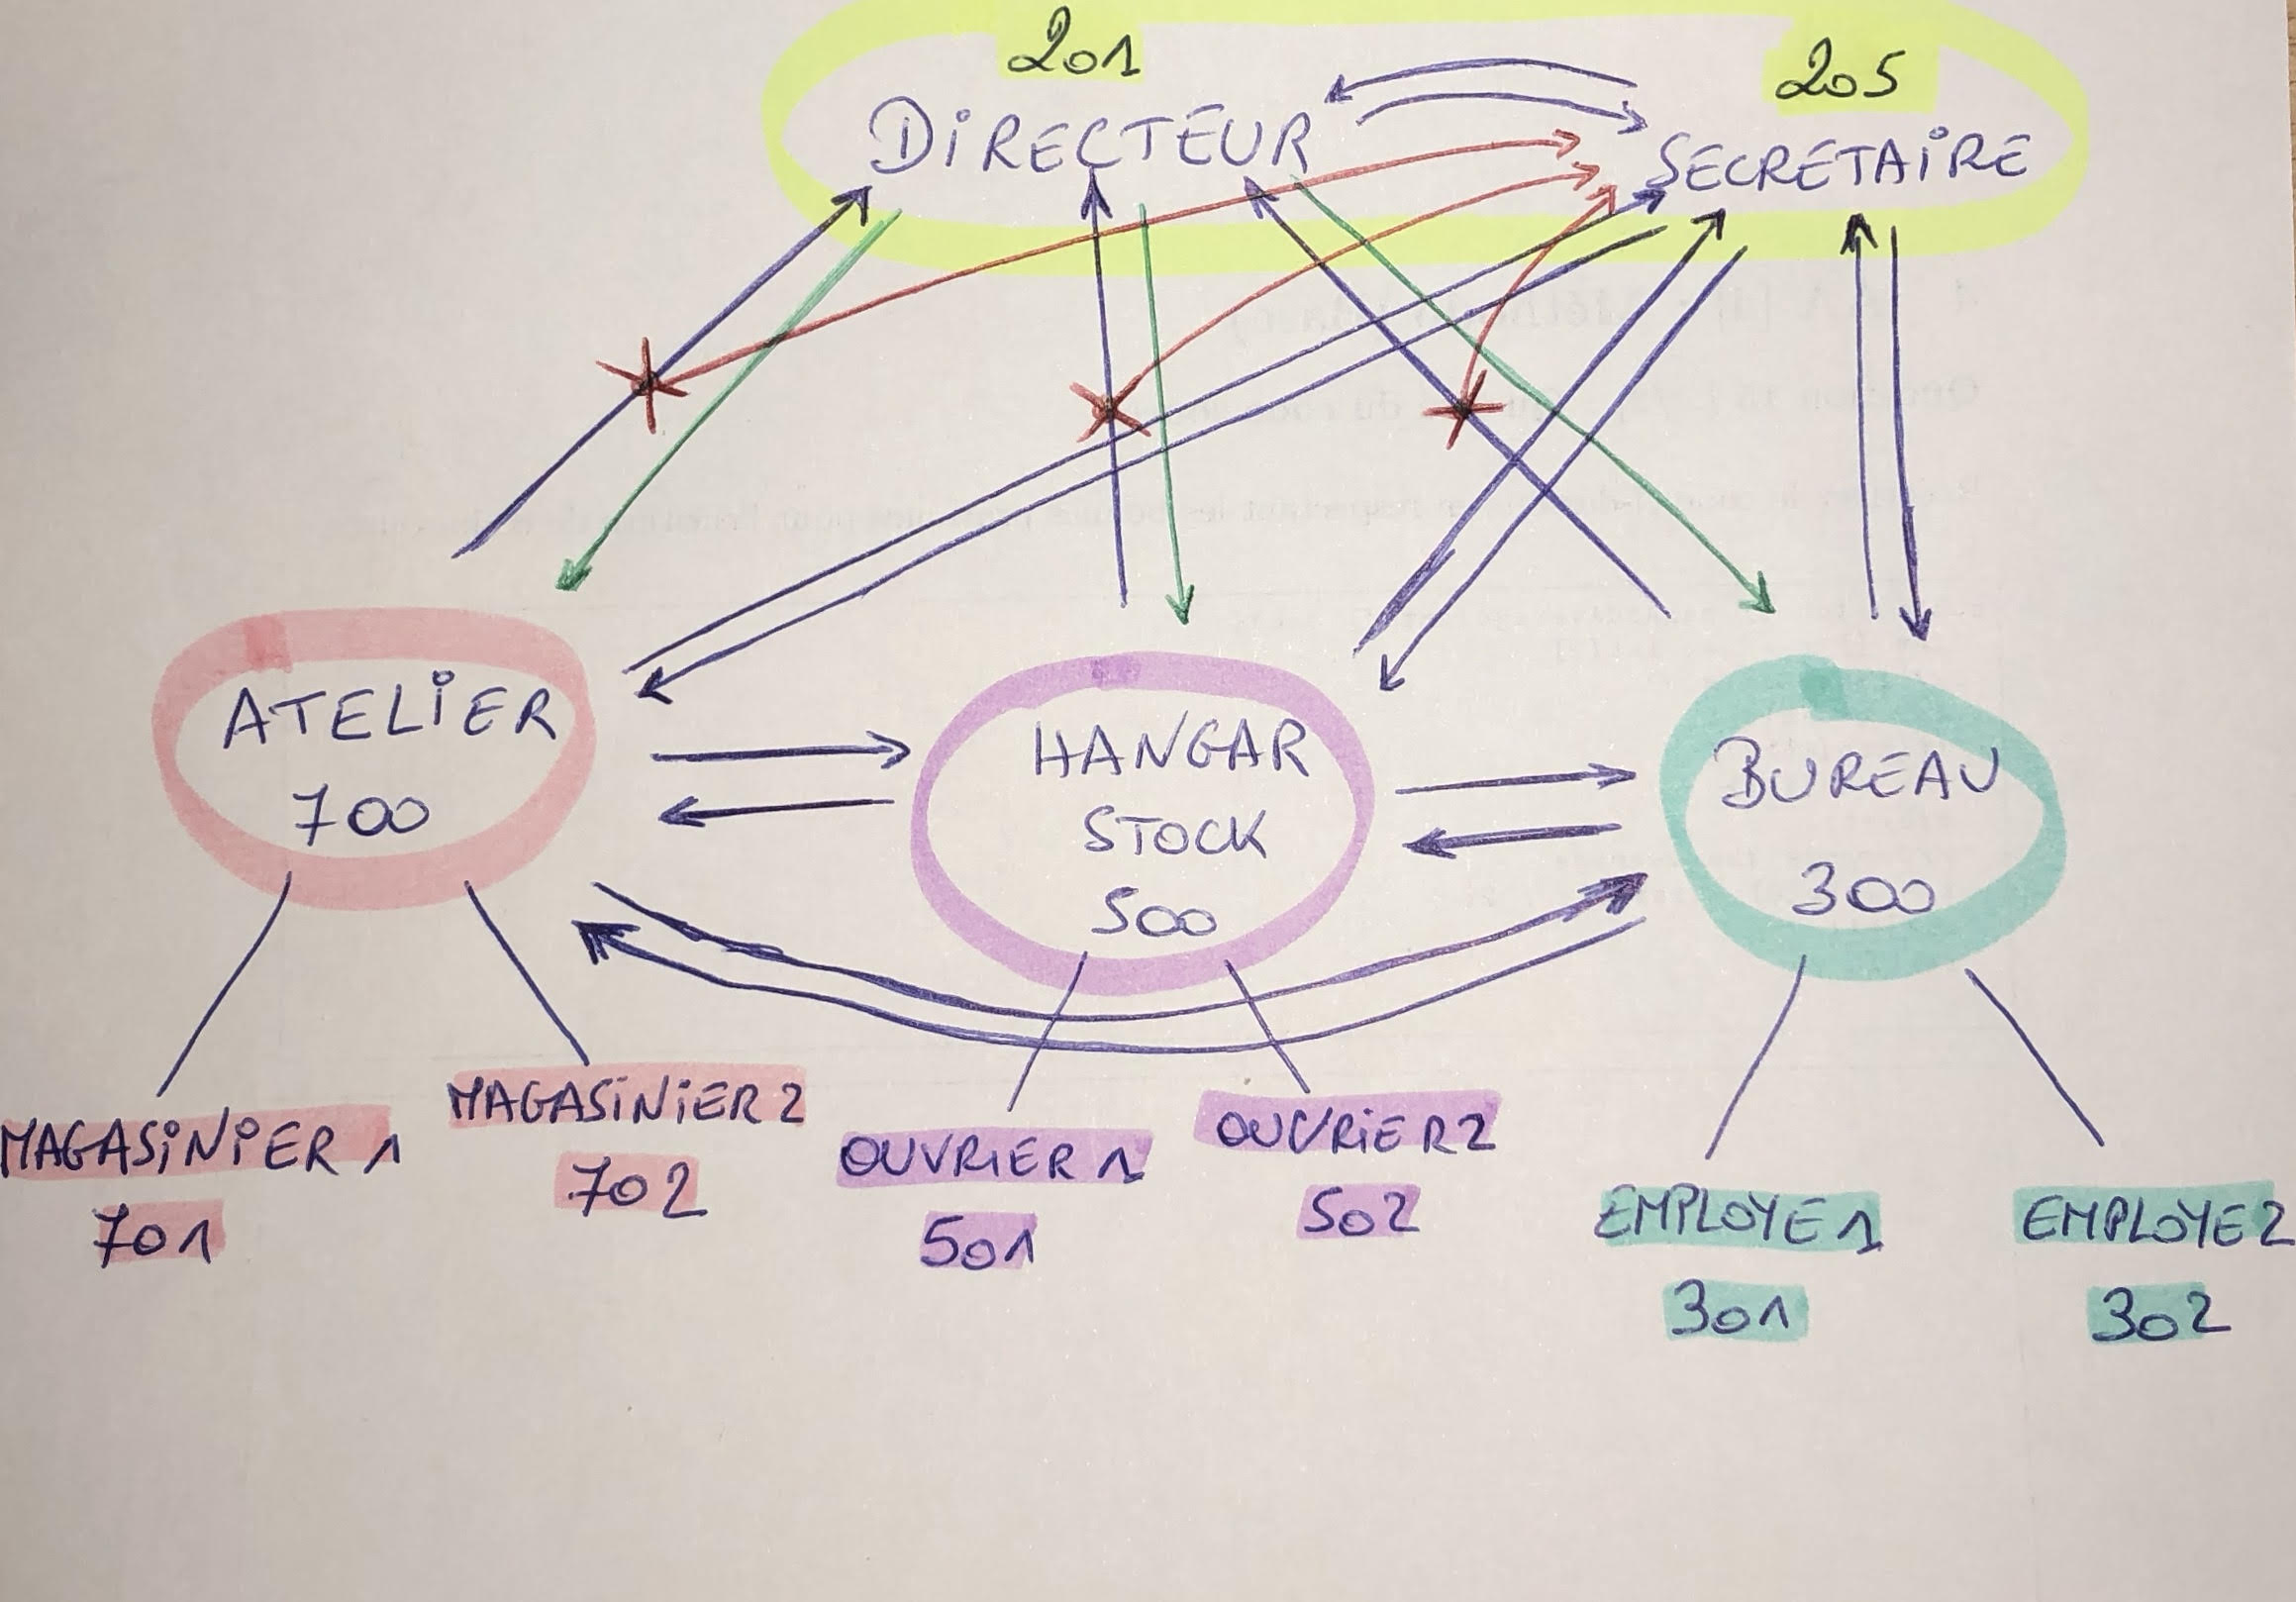 201
205
DIRECTEUR
SECRETAIRE
ATELIER
700
HANGAR
STOCK
500
BUREAU
300
MAGASINIER 1
701
MAGASINIER 2
702
OUVRIER 1
501
OUVRIER 2
502
EMPLOYE 1
301
EMPLOYE 2
302